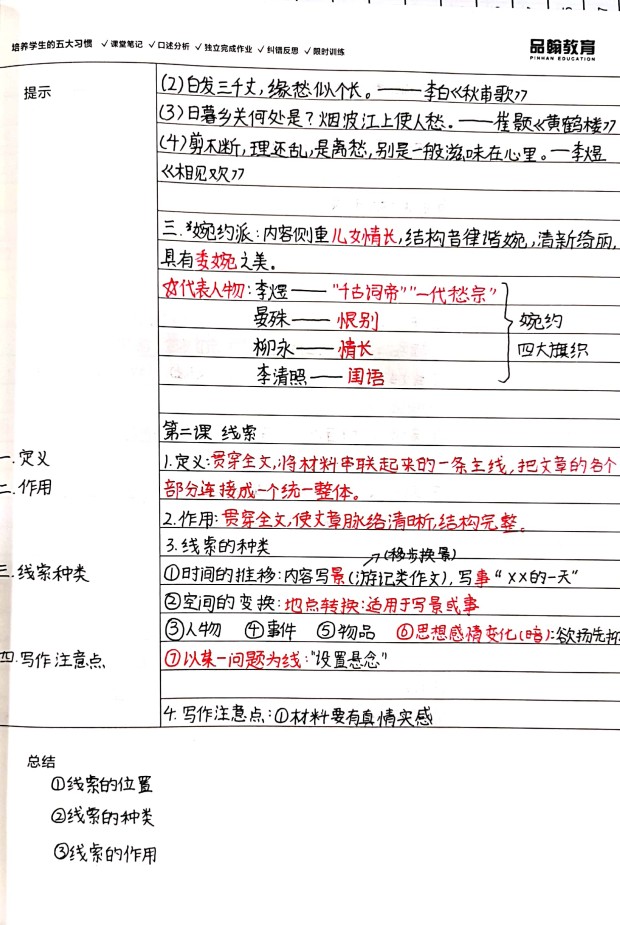 培养学生的五大习惯 ✓课堂笔记 ✓口述分析 ✓独立完成作业 ✓纠错反思 ✓限时训练
品翰教育
PINHAN EDUCATION
提示
(2)白发三千丈,缘愁似个长。——李白《秋浦歌》
(3)日暮乡关何处是?烟波江上使人愁。——崔颢《黄鹤楼》
(4)剪不断,理还乱,是离愁,别是一般滋味在心里。—李煜
《相见欢》
三.*婉约派:内容侧重儿女情长,结构音律谐婉,清新绮丽,
具有委婉之美。
☆代表人物:李煜——"千古词帝""一代愁宗"
晏殊——恨别
柳永——情长
李清照——闺语
婉约
四大旗织
第二课 线索
一.定义
1.定义:贯穿全文,将材料串联起来的一条主线,把文章的各个
二.作用
部分连接成一个统一整体。
2.作用:贯穿全文,使文章脉络清晰,结构完整。
3.线索的种类
(移步换景)
三.线索种类
①时间的推移:内容写景(游记类作文),写事"XX的一天"
②空间的变换:地点转换:适用于写景或事
③人物 ④事件 ⑤物品 ⑥思想感情变化(暗):欲扬先抑
四.写作注意点
⑦以某一问题为线:"设置悬念"
4.写作注意点:①材料要有真情实感
总结
①线索的位置
②线索的种类
③线索的作用